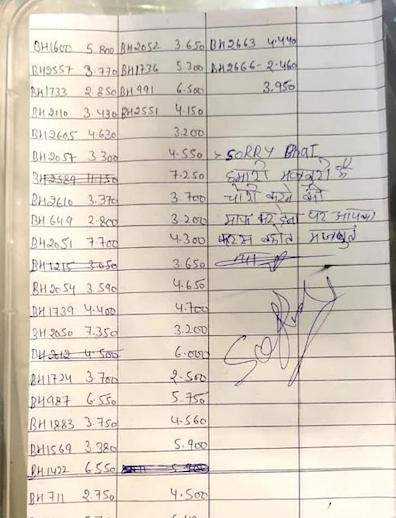 BH1600 5.800 BH2052 3.650 BH2663 4.440
BH2557 3.770 BH1736 5.300 BH2666- 2.460
BH1733 2.850 BH991 6.500 3.950
BH2110 3.430 BH2551 4.150
BH2605 4.630 3.200
BH2057 3.300 4.550 SORRY Bhai
BH2589 11.150 7.250 हमारी मजबूरी है
BH2610 3.370 3.700 चोरी करने की
BH649 2.800 3.200 माफ कर देना पर आपका
BH2051 7.700 4.300 बहोत मजबुत
BH1215 3.050 3.650
BH2054 3.590 4.650
BH1739 4.400 4.700
BH2050 7.350 3.200
4.500 6.000 Sorry
BH1724 3.700 2.500
BH987 6.550 5.750
BH1883 3.750 4.560
BH1569 3.380 5.900
BH1422 6.550
BH711 2.750 4.500